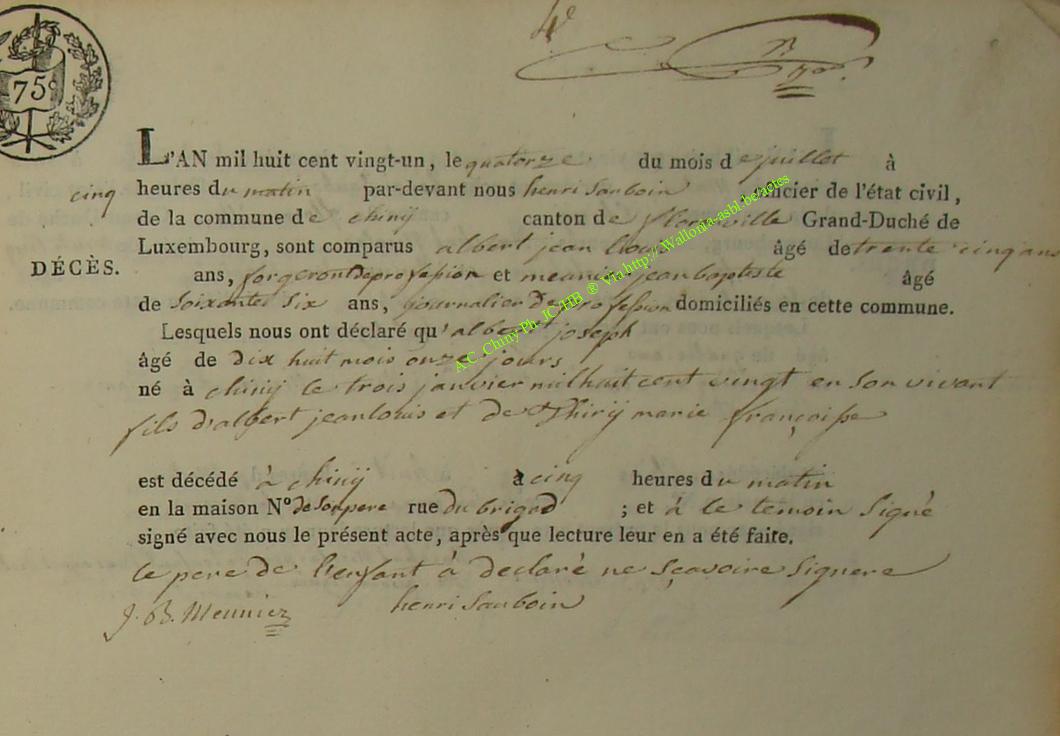 4e
75c
L'AN mil huit cent vingt-un, le quatorze du mois de juillet à
cinq heures du matin par-devant nous henri Sauboin officier de l'état civil,
de la commune de chinÿ canton de florenville Grand-Duché de
Luxembourg, sont comparus albert jean louis âgé de trente cinq ans
DÉCÈS.
ans, forgeront de profession et meunier jean baptiste âgé
de soixantes six ans, journalier de profession domiciliés en cette commune.
Lesquels nous ont déclaré qu'albert joseph
âgé de dix huit mois onze jours
né à chinÿ le trois janvier mil huit cent vingt en son vivant
fils d'albert jean louis et de Thirÿ marie françoisse
est décédé à chinÿ à cinq heures du matin
en la maison N° de son pere rue du brigad ; et à le temoin Signé
signé avec nous le présent acte, après que lecture leur en a été faite.
le pere de l'enfant à declaré ne sçavoire signere
J. B. Meunier henri Sauboin
A.C. Chiny Ph. IC-HB ® Via http://Wallonia-asbl.be/actes